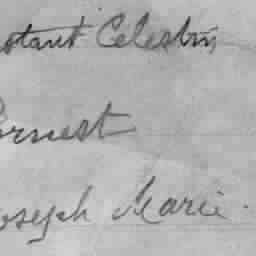 nstant Celestin
Ernest
Joseph Marie.